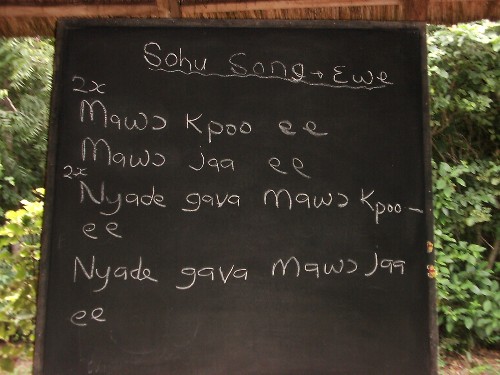 Sohu Song → Ewe
2x
Mawɔ Kpoo ee
Mawɔ jaa ee
2x
Nyade gava Mawɔ Kpoo –
ee
Nyade gava Mawɔ jaa
ee